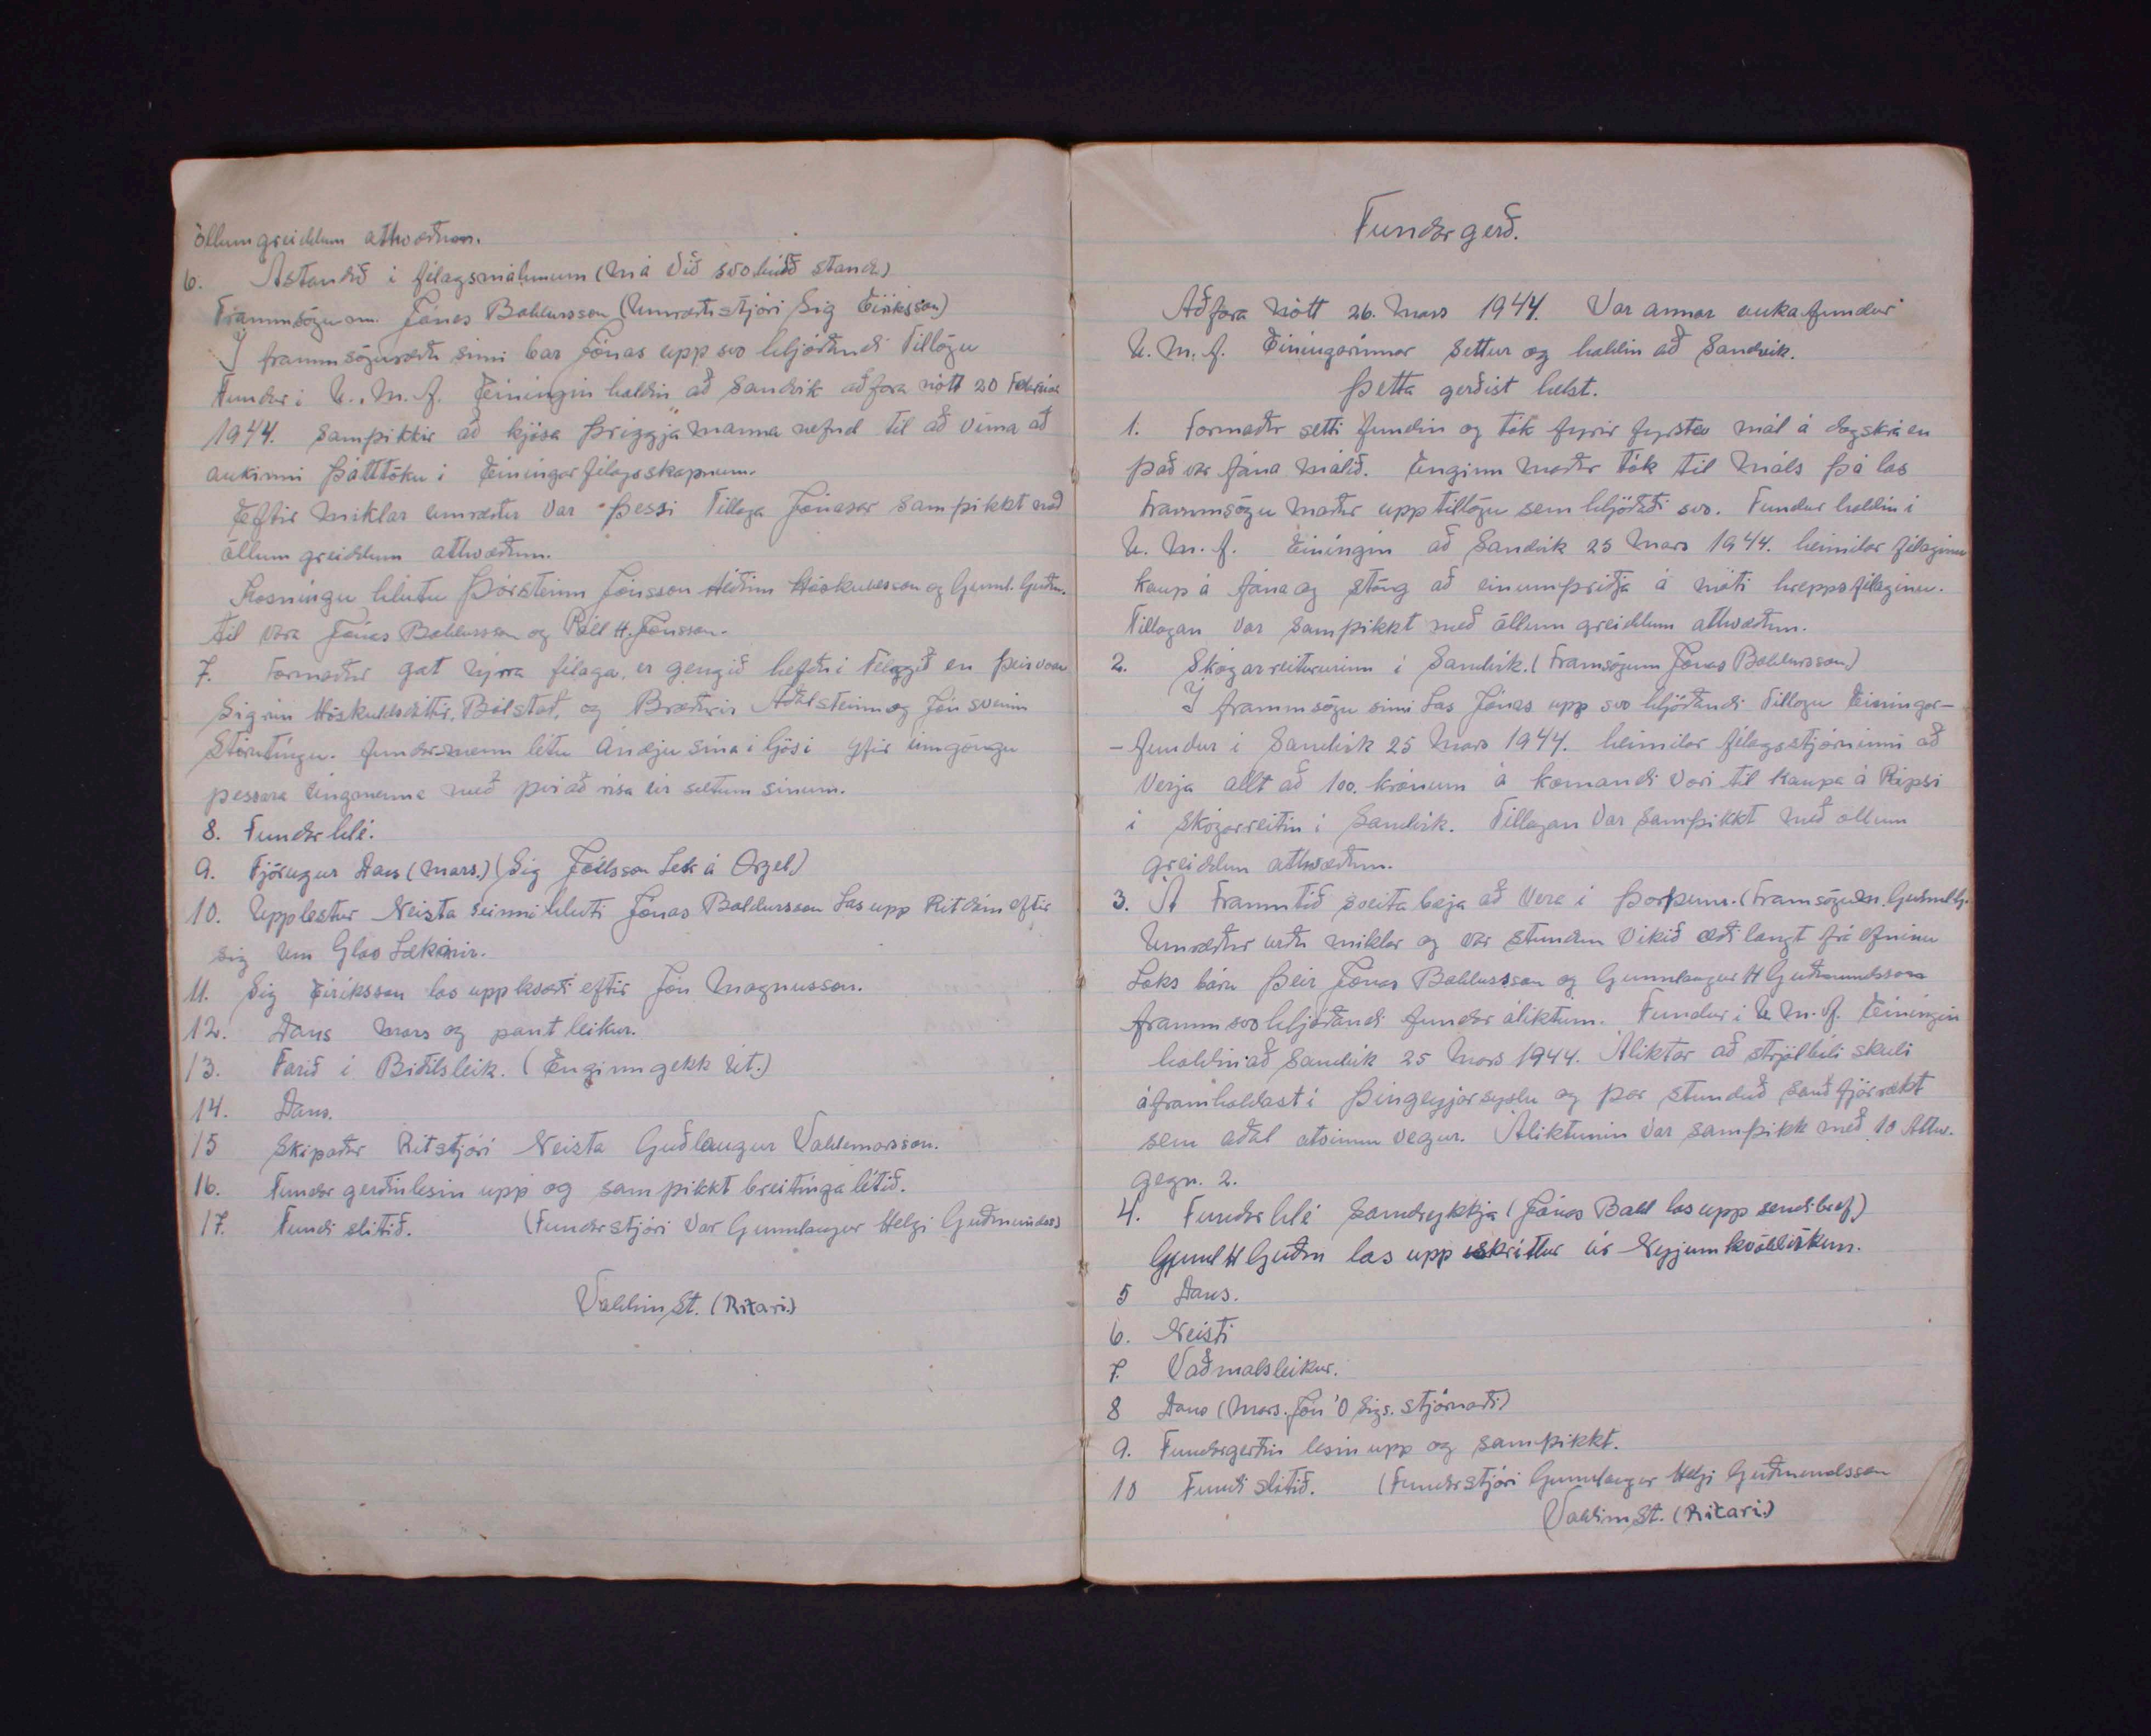 öllum greiddum atkvæðum.
6. Astandið i félagsmálunum (má við svo búið standa)
Frammsögum. Jónas Baldursson (Umræðistjóri Sig Eiriksson)
I frammsöguræðu sinni bar Jónas upp svo hljóðandi Tillögu
Fundur i U.M.f. Einingin haldin að Sandvik aðfara nótt 20 Februar
1944. Samþikkir að kjósa þriggja manna nefnd til að vinna að
aukinni þátttöku i Einingar félagsskapnum.
Eftir miklar umræður var þessi Tillaga Jónasar Samþikkt með
öllum greiddum atkvæðum.
Kosningu hlutu Þórsteinn Jónsson Héðinn Höskuldsson og Gunnl. Guðm.
til vara Jónas Baldursson og Páll H. Jónsson.
7. Formaður gat nýrra félaga, er gengið hefðu i Félagið en þeir voru
Sigrún Höskuldsdóttir, Bólstað, og Bræðurnir Aðalsteinn og Jón sveinn
Stórutúngu. fundarmenn létu ánæju sína i ljósi yfir inngöngu
þessara úngmenna með þvi að rísa úr sætum sinum.
8. Fundar hlé.
9. Fjörugur Dans (Mars.) (Sig Jóelsson Lék á Orgel)
10. Upplestur Neista seinni hluti Jónas Baldursson Las upp Ritdóm eftir
sig um Glas Læknir.
11. Sig Eiriksson las upp kvæði eftir Jón Magnusson.
12. Dans mars og pant leikur.
13. Farið i Biðilsleik. (Enginn gekk út.)
14. Dans.
15 Skipaður Ritstjóri Neista Guðlaugur Valdemarsson.
16. Fundar gerðin lesin upp og samþikkt breitinga litið.
17. Fundi slitið. (Fundarstjóri var Gunnlaugur Helgi Guðmundss)
Valdim St. (Ritari.)
Fundar gerð.
Aðfara Nótt 26. Mars 1944. Var annar aukafundur
U.M.f. Einingarinnar Settur og haldin að Sandvik.
Þetta gerðist helst.
1. Formaður setti fundin og tók fyrir fyrsta mál á dagskrá en
það var fána málið. Enginn maður tók til Máls þá las
Frammsögu maður upp tillögu sem hljóðaði svo. Fundur haldin i
U.M.f. Einingin að Sandvik 25 Mars 1944. heimilar félaginu
kaup á fána og stöng að einumþriðja á móti hreppsfélaginu.
Tillagan var Samþikkt með öllum greiddum atkvæðum.
2. Skógarreiturinn i Sandvik. (Framsögum Jónas Baldursson)
I frammsögu sinni Las Jónas upp svo hljóðandi Tillögu Einingar-
- fundur i Sandvik 25 Mars 1944. heimilar félagsstjórninni að
Verja allt að 100. krónum á komandi vori til kaupa á Ripsi
i skógarreitin i Sandvik. Tillagan var Samþikkt með öllum
greiddum atkvæðum.
3. Á Framtið sveita bæja að Vera i þorpum. (Framsögum. Guðmundl.
Umræður urðu miklar og var stundum vikið æði langt frá efninu
Loks báru þeir Jónas Baldursson og Gunnlaugur H Guðmundsson
framm svo hljóðandi fundar áliktun. Fundur i U M.f. Einingin
haldin að Sandvik 25 Mars 1944. Áliktar að strjálbíli skuli
áframhaldast i Þingeyjarsyslu og þar stunduð sauðfjárrækt
sem aðal atvinnu vegur. Áliktunin var samþikk með 10 Atkv.
gegn. 2.
4. Fundar hlé Samdrykkja (Jónas Bald las upp sendibréf)
Gunnl H Guðm las upp skrítlur úr Nyjum kvöldvökum.
5 Dans.
6. Neisti
7. Vaðmalsleikur.
8 Dans (Mars. Jón Ó Sigs. Stjórnaði)
9. Fundargerðin lesin upp og samþikkt.
10 Fundi slitið. (Fundarstjóri Gunnlaugur Helgi Guðmundsson
Valdim St. (Ritari.)